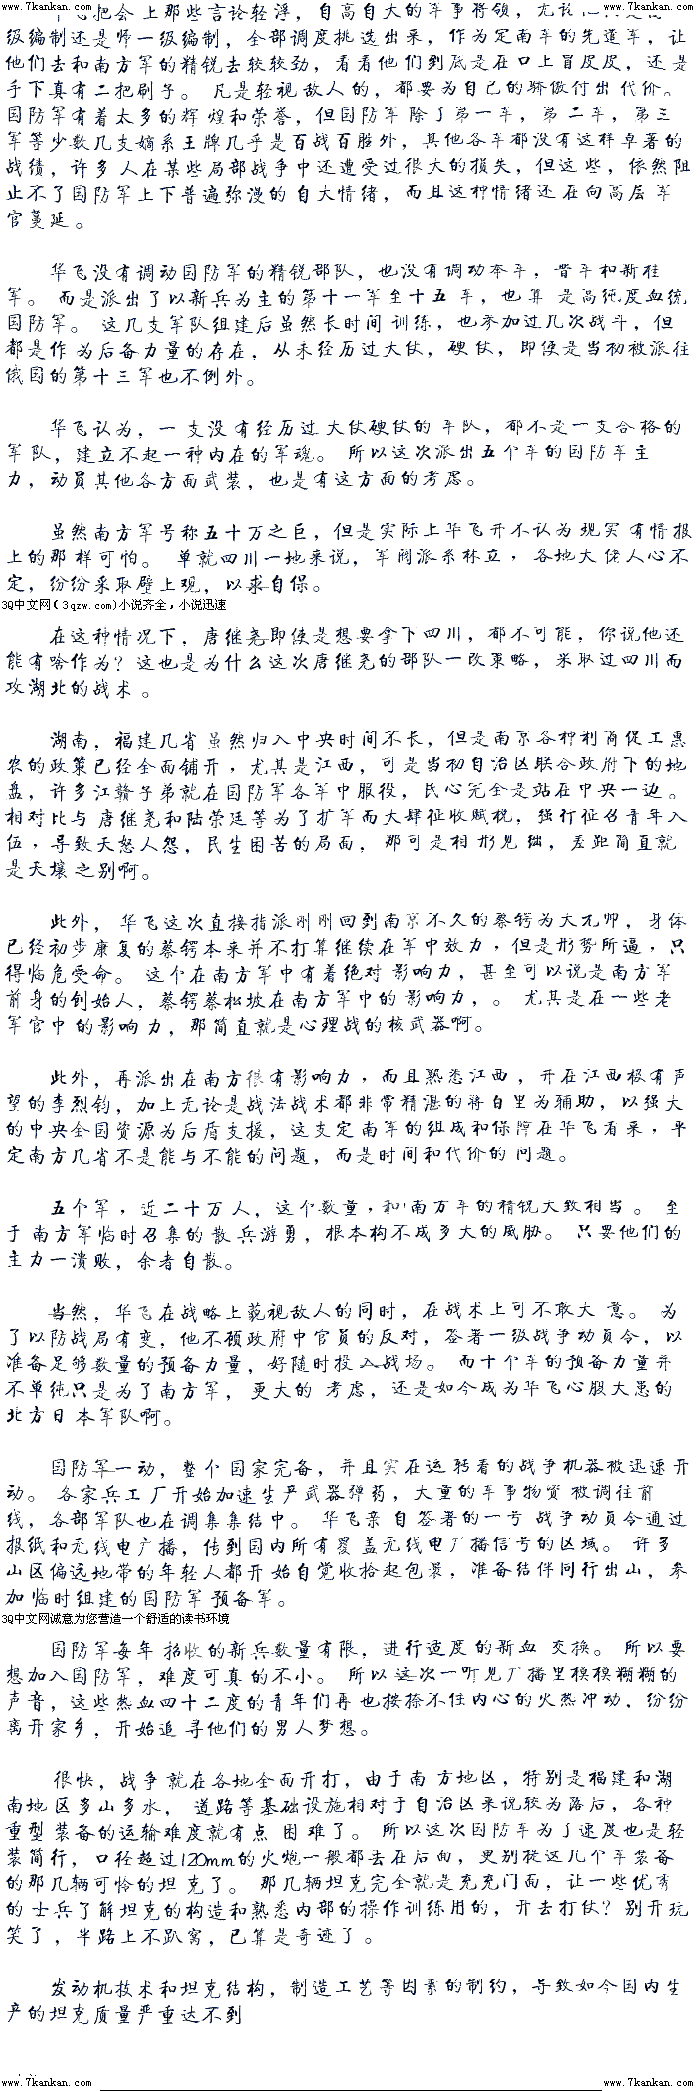 www.7kankan.com www.7kankan.com
华飞把会上那些言论轻浮，自高自大的军事将领，无论
级编制还是师一级编制，全部调度挑选出来，作为定南军的先遣军，让
他们去和南方军的精锐去较较劲，看看他们到底是在口上冒皮皮，还是
手下真有二把刷子。 凡是轻视敌人的，都要为自己的骄傲付出代价。
国防军有着太多的辉煌和荣誉，但国防军除了第一军，第二军，第三
军等少数几支嫡系王牌几乎是百战百胜外，其他各军都没有这样卓著的
战绩，许多人在某些局部战争中还遭受过很大的损失，但这些，依然阻
止不了国防军上下普遍弥漫的自大情绪，而且这种情绪还在向高层军
官蔓延。
华飞没有调动国防军的精锐部队，也没有调动本军，晋军和新桂
军。 而是派出了以新兵为主的第十一军至十五军，也算是高纯度血统
国防军。 这几支军队组建后虽然长时间训练，也参加过几次战斗，但
都是作为后备力量的存在，从未经历过大仗，硬仗，即便是当初被派往
俄国的第十三军也不例外。
华飞认为，一支没有经历过大仗硬仗的军队，都不是一支合格的
军队，建立不起一种内在的军魂。 所以这次派出五个军的国防军主
力，动员其他各方面武装，也是有这方面的考虑。
虽然南方军号称五十万之巨，但是实际上华飞并不认为现实有情报
上的那样可怕。 单就四川一地来说，军阀派系林立，各地大佬人心不
定，纷纷采取壁上观，以求自保。
3Q中文网(3qzw.com)小说齐全，小说迅速
在这种情况下，唐继尧即使是想要拿下四川，都不可能，你说他还
能有啥作为？这也是为什么这次唐继尧的部队一改策略，采取过四川而
攻湖北的战术。
湖南，福建几省虽然归入中央时间不长，但是南京各种利商促工惠
农的政策已经全面铺开，尤其是江西，可是当初自治区联合政府下的地
盘，许多江赣子弟就在国防军各军中服役，民心完全是站在中央一边。
相对比与唐继尧和陆荣廷等为了扩军而大肆征收赋税，强行征召青年入
伍，导致天怒人怨，民生困苦的局面，那可是相形见绌，差距简直就
是天壤之别啊。
此外，华飞这次直接指派刚刚回到南京不久的蔡锷为大元帅，身体
已经初步康复的蔡锷本来并不打算继续在军中效力，但是形势所逼，只
得临危受命。 这个在南方军中有着绝对影响力，甚至可以说是南方军
前身的创始人，蔡锷蔡松坡在南方军中的影响力，。 尤其是在一些老
军官中的影响力，那简直就是心理战的核武器啊。
此外，再派出在南方很有影响力，而且熟悉江西，并在江西极有声
望的李烈钧，加上无论是战法战术都非常精湛的蒋百里为辅助，以强大
的中央全国资源为后盾支援，这支定南军的组成和保障在华飞看来，平
定南方几省不是能与不能的问题，而是时间和代价的问题。
五个军，近二十万人，这个数量，和南方军的精锐大致相当。 至
于南方军临时召集的散兵游勇，根本构不成多大的威胁。 只要他们的
主力一溃败，余者自散。
当然，华飞在战略上藐视敌人的同时，在战术上可不敢大意。 为
了以防战局有变，他不顾政府中官员的反对，签署一级战争动员令，以
准备足够数量的预备力量，好随时投入战场。 而十个军的预备力量并
不单纯只是为了南方军，更大的考虑，还是如今成为华飞心腹大患的
北方日本军队啊。
国防军一动，整个国家完备，并且实在运转着的战争机器被迅速开
动。 各家兵工厂开始加速生产武器弹药，大量的军事物资被调往前
线，各部军队也在调集集结中。 华飞亲自签署的一号战争动员令通过
报纸和无线电广播，传到国内所有覆盖无线电广播信号的区域。 许多
山区偏远地带的年轻人都开始自觉收拾起包裹，准备结伴同行出山，参
加临时组建的国防军预备军。
3Q中文网诚意为您营造一个舒适的读书环境
国防军每年招收的新兵数量有限，进行适度的新血交换。 所以要
想加入国防军，难度可真的不小。 所以这次一听见广播里模模糊糊的
声音，这些热血四十二度的青年们再也按捺不住内心的火热冲动，纷纷
离开家乡，开始追寻他们的男人梦想。
很快，战争就在各地全面开打，由于南方地区，特别是福建和湖
南地区多山多水，道路等基础设施相对于自治区来说较为落后，各种
重型装备的运输难度就有点困难了。 所以这次国防军为了速度也是轻
装简行，口径超过120mm的火炮一般都去在后面，更别提这几个军装备
的那几辆可怜的坦克了。 那几辆坦克完全就是充充门面，让一些优秀
的士兵了解坦克的构造和熟悉内部的操作训练用的，开去打仗？别开玩
笑了，半路上不趴窝，已算是奇迹了。
发动机技术和坦克结构，制造工艺等因素的制约，导致如今国内生
产的坦克质量严重达不到
www.7kankan.com www.7kankan.com